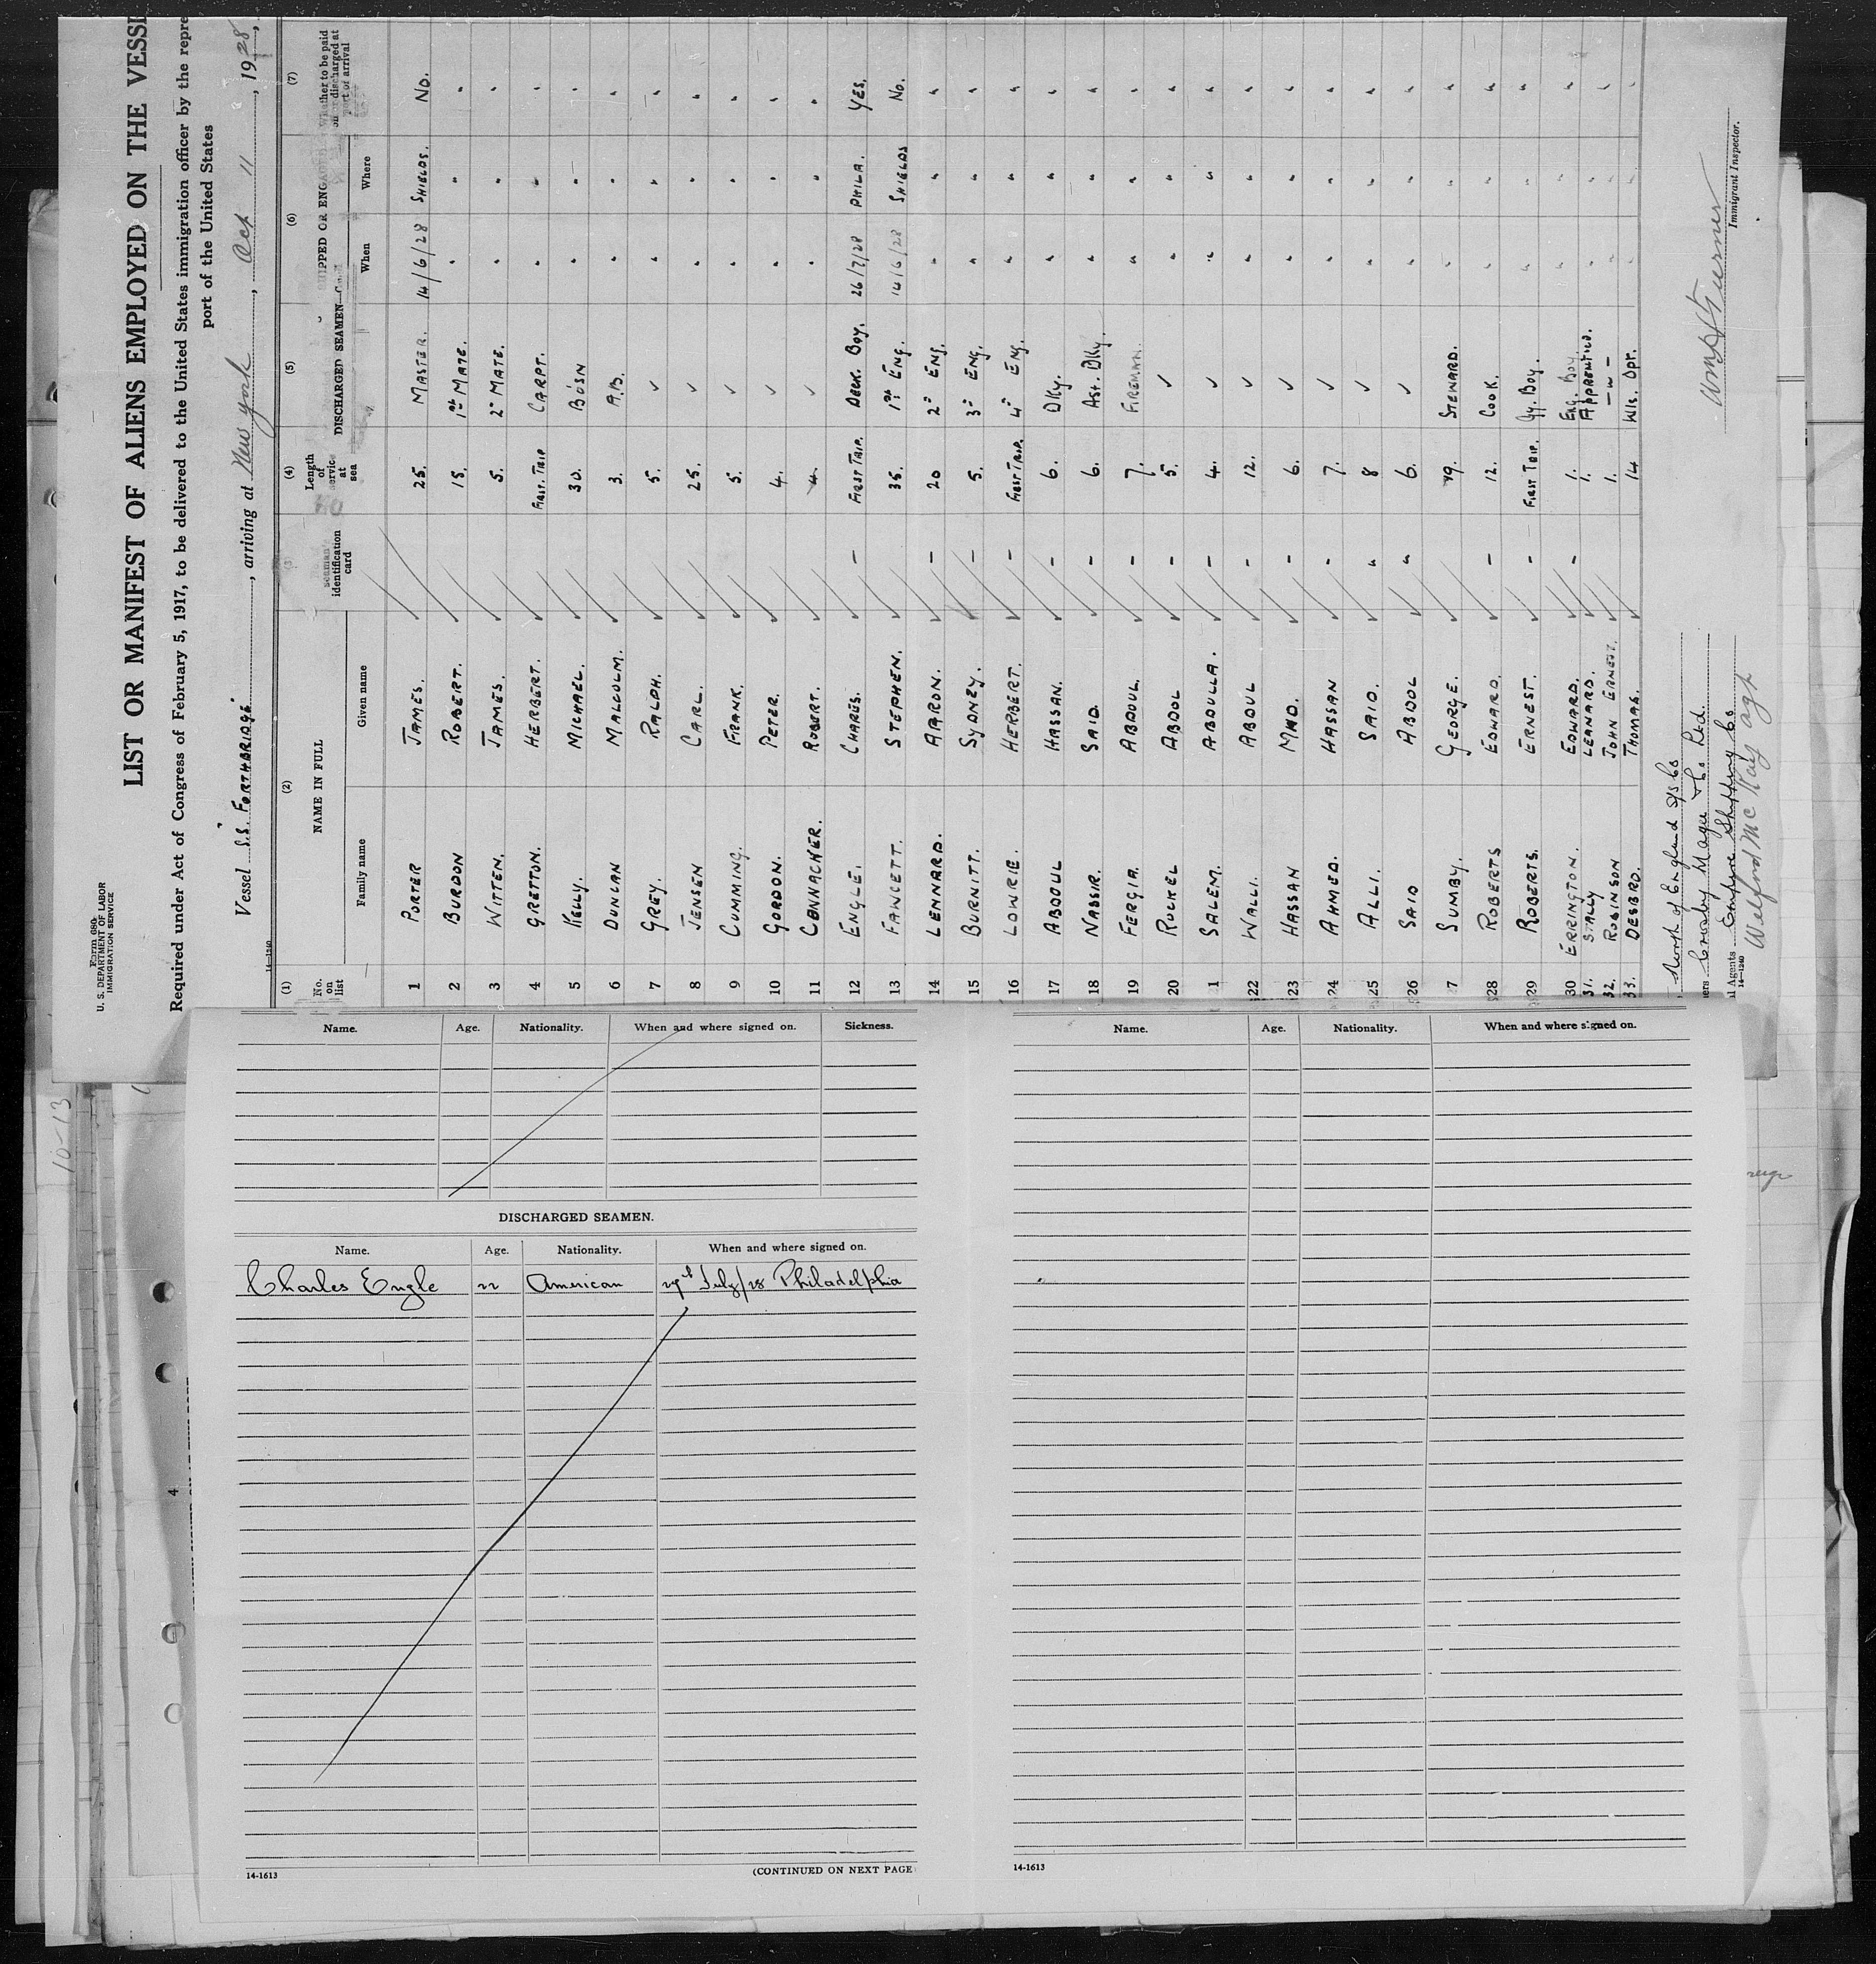 Form 680
U. S. DEPARTMENT OF LABOR
IMMIGRATION SERVICE
LIST OR MANIFEST OF ALIENS EMPLOYED ON THE
Required under Act of Congress of February 5, 1917, to be delivered to the United States immigration officer by the
port of the United States
Vessel S.S. "FORTHBRIDGE", arriving at New York, Oct 11, 1928,
14-1240
(1) (2) (4) (5) (6) (7)
No. on list NAME IN FULL Family name Given name identification card Length of service at sea DISCHARGED SEAMEN When Where
1 PORTER JAMES. 25. MASTER. 14/6/28 SHIELDS. NO.
2 BURDON ROBERT. 15. 1st MATE. " " "
3 WITTEN. JAMES. 5. 2" MATE. " " "
4 GRETTON. HERBERT. FIRST. TRIP CARPT. " " "
5 KELLY. MICHAEL. 30. BO'SN " " "
6 DUNCAN MALCOLM. 3. A.B. " " "
7 GREY. RALPH. 5. ✓ " " "
8 JENSEN CARL. 25. ✓ " " "
9 CUMMING. FRANK. 5. ✓ " " "
10 GORDON. PETER. 4. ✓ " " "
11 CONNACHER. ROBERT. 4. ✓ " " "
12 ENGLE. CHARES. - FIRST TRIP. DECK. BOY. 26/7/28 PHILA. YES.
13 FAWCETT. STEPHEN. 35. 1st ENG. 14/6/28 SHIELDS NO.
14 LENNARD. AARON. - 20 2" ENG. " " "
15 BURNITT. SYDNEY. - 5. 3" ENG. " " "
16 LOWRIE. HERBERT. - FIRST TRIP. 4" ENG. " " "
17 ABDOUL HASSAN. - 6. DKY. " " "
18 NASSIR. SAID. - 6. AST. DKY. " " "
19 FERGIA. ABDOUL. - 7. FIREMAN. " " "
20 RUCKEL ABDOL - 5. ✓ " " "
1 SALEM. ABDULLA. - 4. ✓ " " "
22 WALLI. ABDUL - 12. ✓ " " "
23 HASSAN MHD. - 6. ✓ " " "
24 AHMED. HASSAN - 7. ✓ " " "
25 ALLI. SAID. " 8 ✓ " " "
26 SAID ABDOL " 6. ✓ " " "
7 SUMBY. GEORGE. 19. STEWARD. " " "
28 ROBERTS EDWARD. - 12. COOK. " " "
29 ROBERTS. ERNEST. - FIRST TRIP. BOY. " " "
30 ERRINGTON. EDWARD. - 1. ENG. BOY. " " "
31. STALLY LEANARD. 1. APPRENTICE. " " "
32. ROBINSON JOHN ERNEST. 1. -"- " " "
33. DESBRO. THOMAS. 14 WLS. OPT. " " "
North of England S/S Co
Crosby Magee & Co Ltd.
Agents Empire Shipping Co
14-1240
Welford McKay agt
Immigrant Inspector.
10-13
4
Name. Age. Nationality. When and where signed on. Sickness.
DISCHARGED SEAMEN.
Name. Age. Nationality. When and where signed on.
Charles Engle 22 American July/28 Philadelphia
14-1613 (CONTINUED ON NEXT PAGE
Name. Age. Nationality. When and where signed on.
14-1613